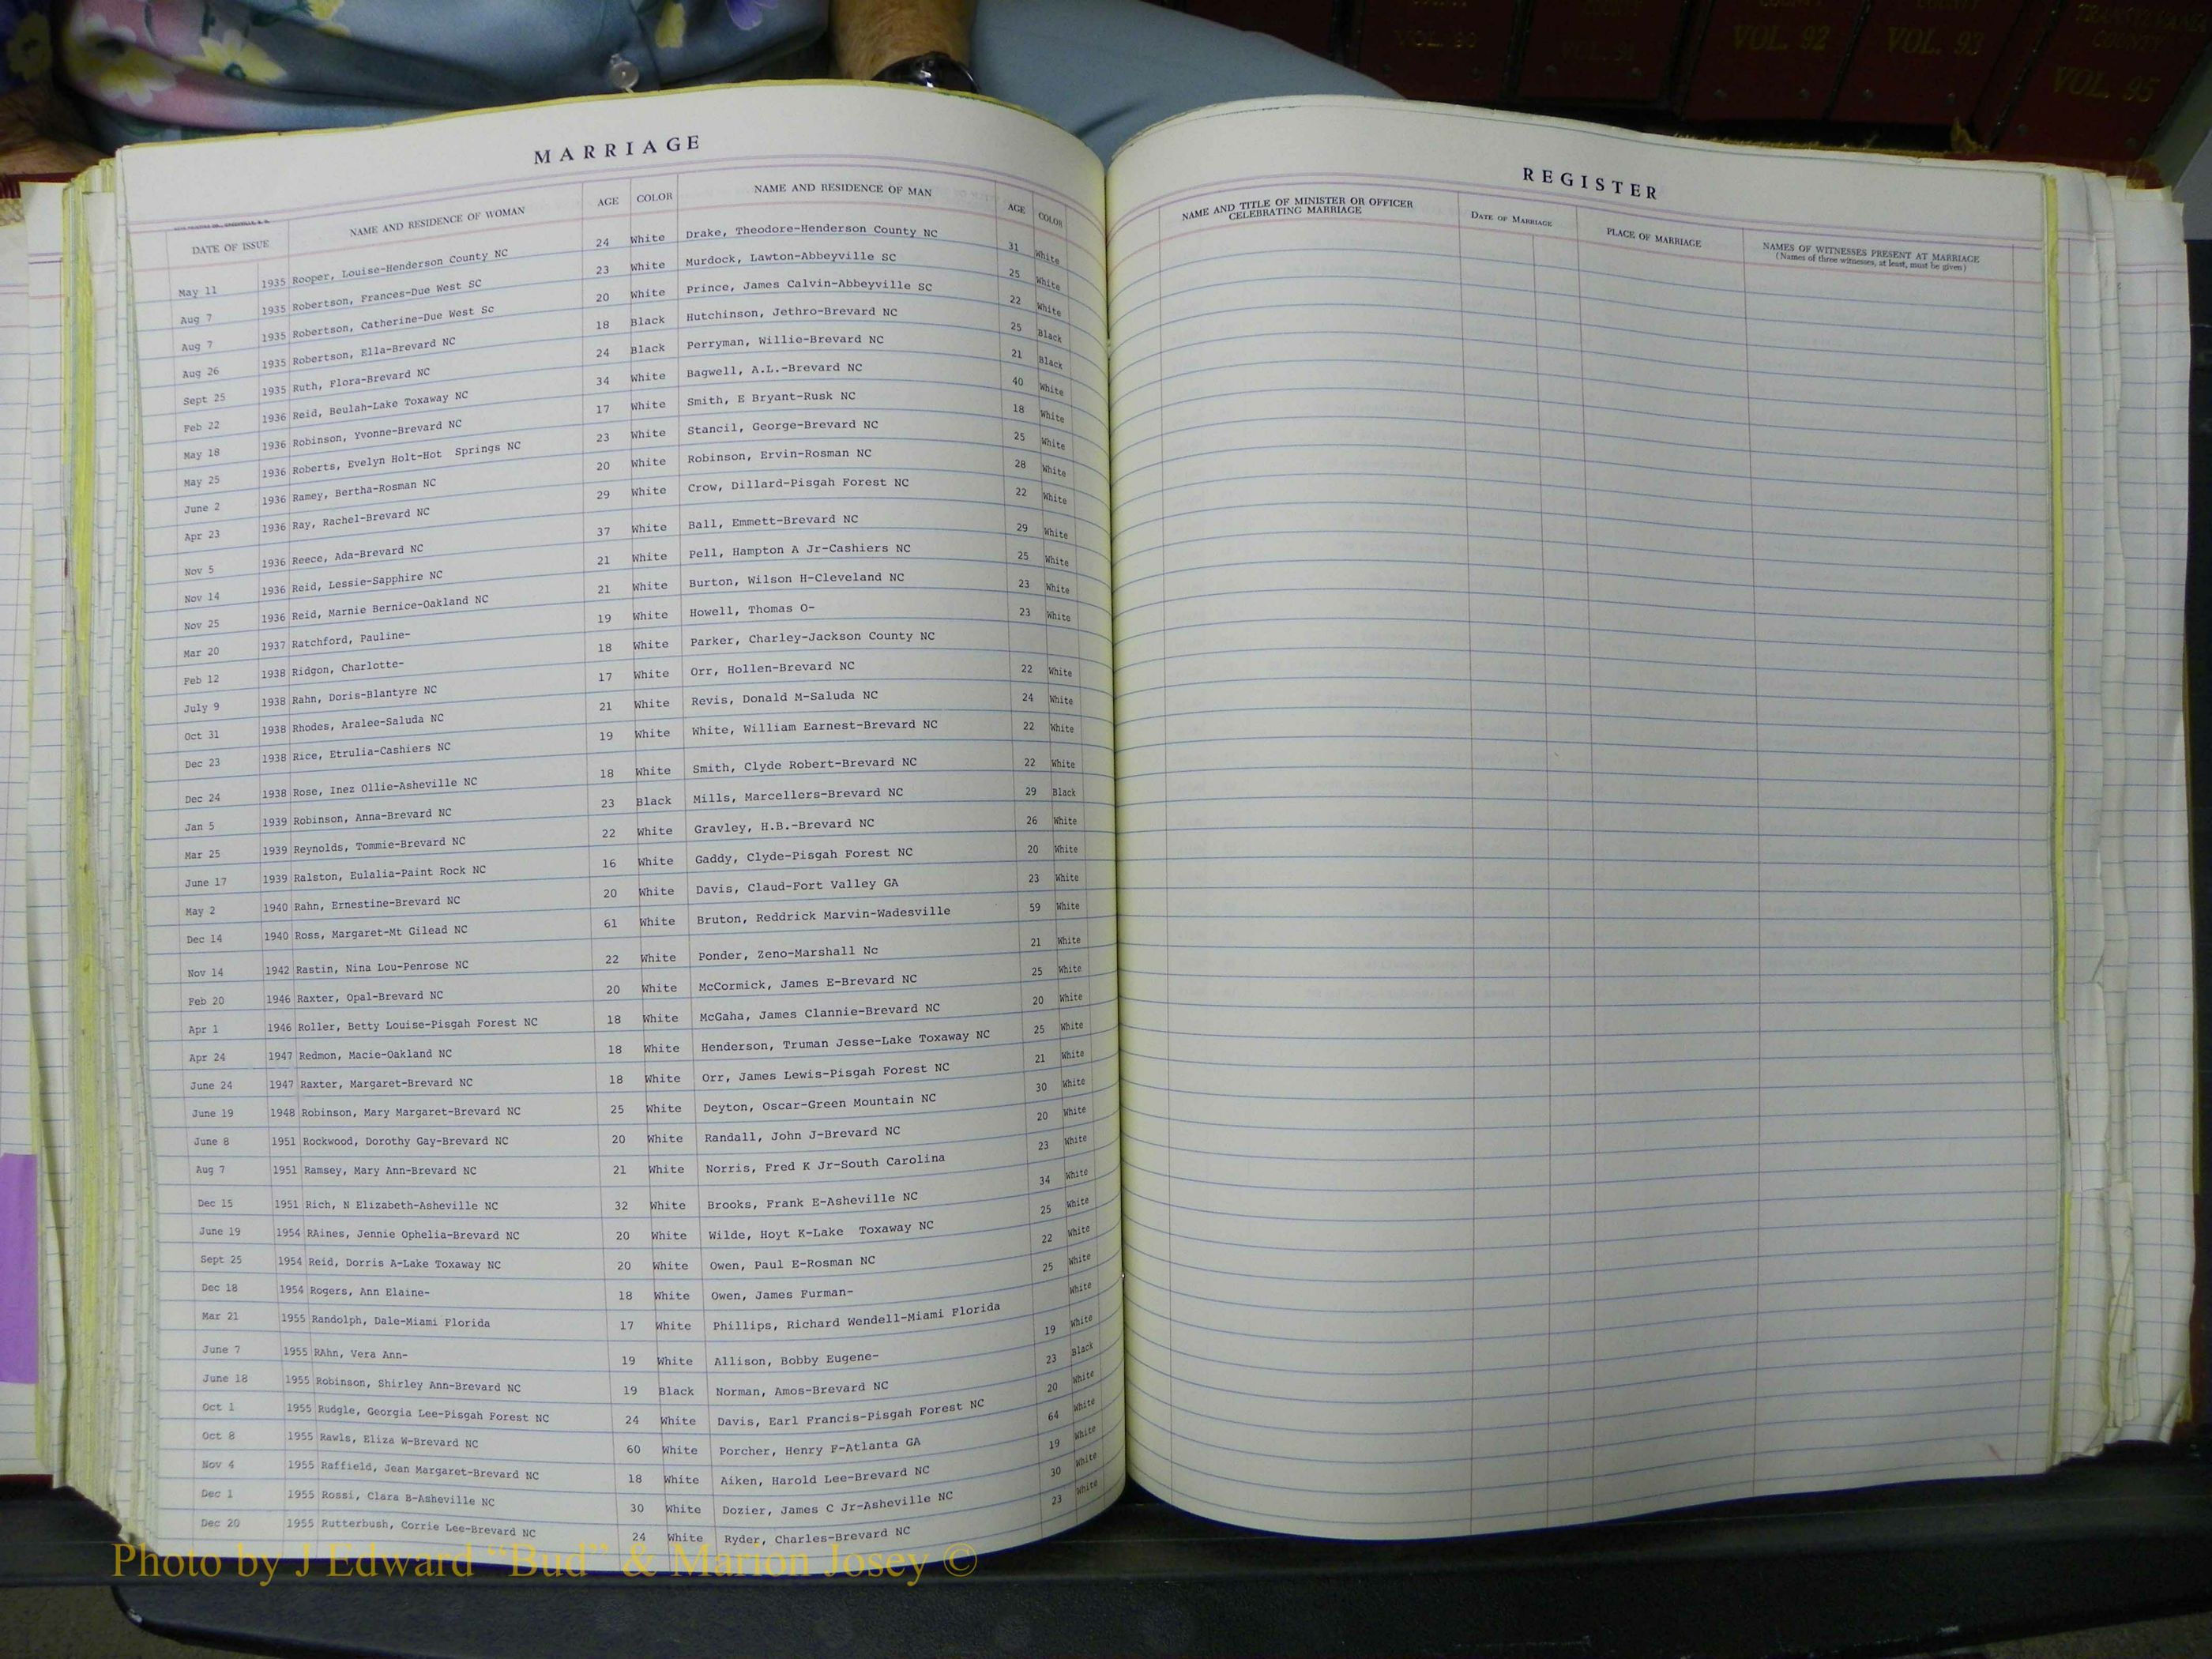 VOL. 92
VOL. 93
TRANSYLVANIA COUNTY
VOL. 95
MARRIAGE
DATE OF ISSUE NAME AND RESIDENCE OF WOMAN AGE COLOR NAME AND RESIDENCE OF MAN AGE COLOR
May 11 1935 Rooper, Louise-Henderson County NC 24 White Drake, Theodore-Henderson County NC 31 White
Aug 7 1935 Robertson, Frances-Due West SC 23 White Murdock, Lawton-Abbeyville SC 25 White
Aug 7 1935 Robertson, Catherine-Due West Sc 20 White Prince, James Calvin-Abbeyville SC 22 White
Aug 26 1935 Robertson, Ella-Brevard NC 18 Black Hutchinson, Jethro-Brevard NC 25 Black
Sept 25 1935 Ruth, Flora-Brevard NC 24 Black Perryman, Willie-Brevard NC 21 Black
Feb 22 1936 Reid, Beulah-Lake Toxaway NC 34 White Bagwell, A.L.-Brevard NC 40 White
May 18 1936 Robinson, Yvonne-Brevard NC 17 White Smith, E Bryant-Rusk NC 18 White
May 25 1936 Roberts, Evelyn Holt-Hot Springs NC 23 White Stancil, George-Brevard NC 25 White
June 2 1936 Ramey, Bertha-Rosman NC 20 White Robinson, Ervin-Rosman NC 28 White
Apr 23 1936 Ray, Rachel-Brevard NC 29 White Crow, Dillard-Pisgah Forest NC 22 White
Nov 5 1936 Reece, Ada-Brevard NC 37 White Ball, Emmett-Brevard NC 29 White
Nov 14 1936 Reid, Lessie-Sapphire NC 21 White Pell, Hampton A Jr-Cashiers NC 25 White
Nov 25 1936 Reid, Marnie Bernice-Oakland NC 21 White Burton, Wilson H-Cleveland NC 23 White
Mar 20 1937 Ratchford, Pauline- 19 White Howell, Thomas O- 23 White
Feb 12 1938 Ridgon, Charlotte- 18 White Parker, Charley-Jackson County NC
July 9 1938 Rahn, Doris-Blantyre NC 17 White Orr, Hollen-Brevard NC 22 White
Oct 31 1938 Rhodes, Aralee-Saluda NC 21 White Revis, Donald M-Saluda NC 24 White
Dec 23 1938 Rice, Etrulia-Cashiers NC 19 White White, William Earnest-Brevard NC 22 White
Dec 24 1938 Rose, Inez Ollie-Asheville NC 18 White Smith, Clyde Robert-Brevard NC 22 White
Jan 5 1939 Robinson, Anna-Brevard NC 23 Black Mills, Marcellers-Brevard NC 29 Black
Mar 25 1939 Reynolds, Tommie-Brevard NC 22 White Gravley, H.B.-Brevard NC 26 White
June 17 1939 Ralston, Eulalia-Paint Rock NC 16 White Gaddy, Clyde-Pisgah Forest NC 20 White
May 2 1940 Rahn, Ernestine-Brevard NC 20 White Davis, Claud-Fort Valley GA 23 White
Dec 14 1940 Ross, Margaret-Mt Gilead NC 61 White Bruton, Reddrick Marvin-Wadesville 59 White
Nov 14 1942 Rastin, Nina Lou-Penrose NC 22 White Ponder, Zeno-Marshall Nc 21 White
Feb 20 1946 Raxter, Opal-Brevard NC 20 White McCormick, James E-Brevard NC 25 White
Apr 1 1946 Roller, Betty Louise-Pisgah Forest NC 18 White McGaha, James Clannie-Brevard NC 20 White
Apr 24 1947 Redmon, Macie-Oakland NC 18 White Henderson, Truman Jesse-Lake Toxaway NC 25 White
June 24 1947 Raxter, Margaret-Brevard NC 18 White Orr, James Lewis-Pisgah Forest NC 21 White
June 19 1948 Robinson, Mary Margaret-Brevard NC 25 White Deyton, Oscar-Green Mountain NC 30 White
June 8 1951 Rockwood, Dorothy Gay-Brevard NC 20 White Randall, John J-Brevard NC 20 White
Aug 7 1951 Ramsey, Mary Ann-Brevard NC 21 White Norris, Fred K Jr-South Carolina 23 White
Dec 15 1951 Rich, N Elizabeth-Asheville NC 32 White Brooks, Frank E-Asheville NC 34 White
June 19 1954 RAines, Jennie Ophelia-Brevard NC 20 White Wilde, Hoyt K-Lake Toxaway NC 25 White
Sept 25 1954 Reid, Dorris A-Lake Toxaway NC 20 White Owen, Paul E-Rosman NC 22 White
Dec 18 1954 Rogers, Ann Elaine- 18 White Owen, James Furman- 25 White
Mar 21 1955 Randolph, Dale-Miami Florida 17 White Phillips, Richard Wendell-Miami Florida White
June 7 1955 RAhn, Vera Ann- 19 White Allison, Bobby Eugene- 19 White
June 18 1955 Robinson, Shirley Ann-Brevard NC 19 Black Norman, Amos-Brevard NC 23 Black
Oct 1 1955 Rudgle, Georgia Lee-Pisgah Forest NC 24 White Davis, Earl Francis-Pisgah Forest NC 20 White
Oct 8 1955 Rawls, Eliza W-Brevard NC 60 White Porcher, Henry F-Atlanta GA 64 White
Nov 4 1955 Raffield, Jean Margaret-Brevard NC 18 White Aiken, Harold Lee-Brevard NC 19 White
Dec 1 1955 Rossi, Clara B-Asheville NC 30 White Dozier, James C Jr-Asheville NC 30 White
Dec 20 1955 Rutterbush, Corrie Lee-Brevard NC 24 White Ryder, Charles-Brevard NC 23 White
REGISTER
NAME AND TITLE OF MINISTER OR OFFICER CELEBRATING MARRIAGE DATE OF MARRIAGE PLACE OF MARRIAGE NAMES OF WITNESSES PRESENT AT MARRIAGE
(Names of three witnesses, at least, must be given)
Photo by J Edward “Bud” & Marion Josey ©